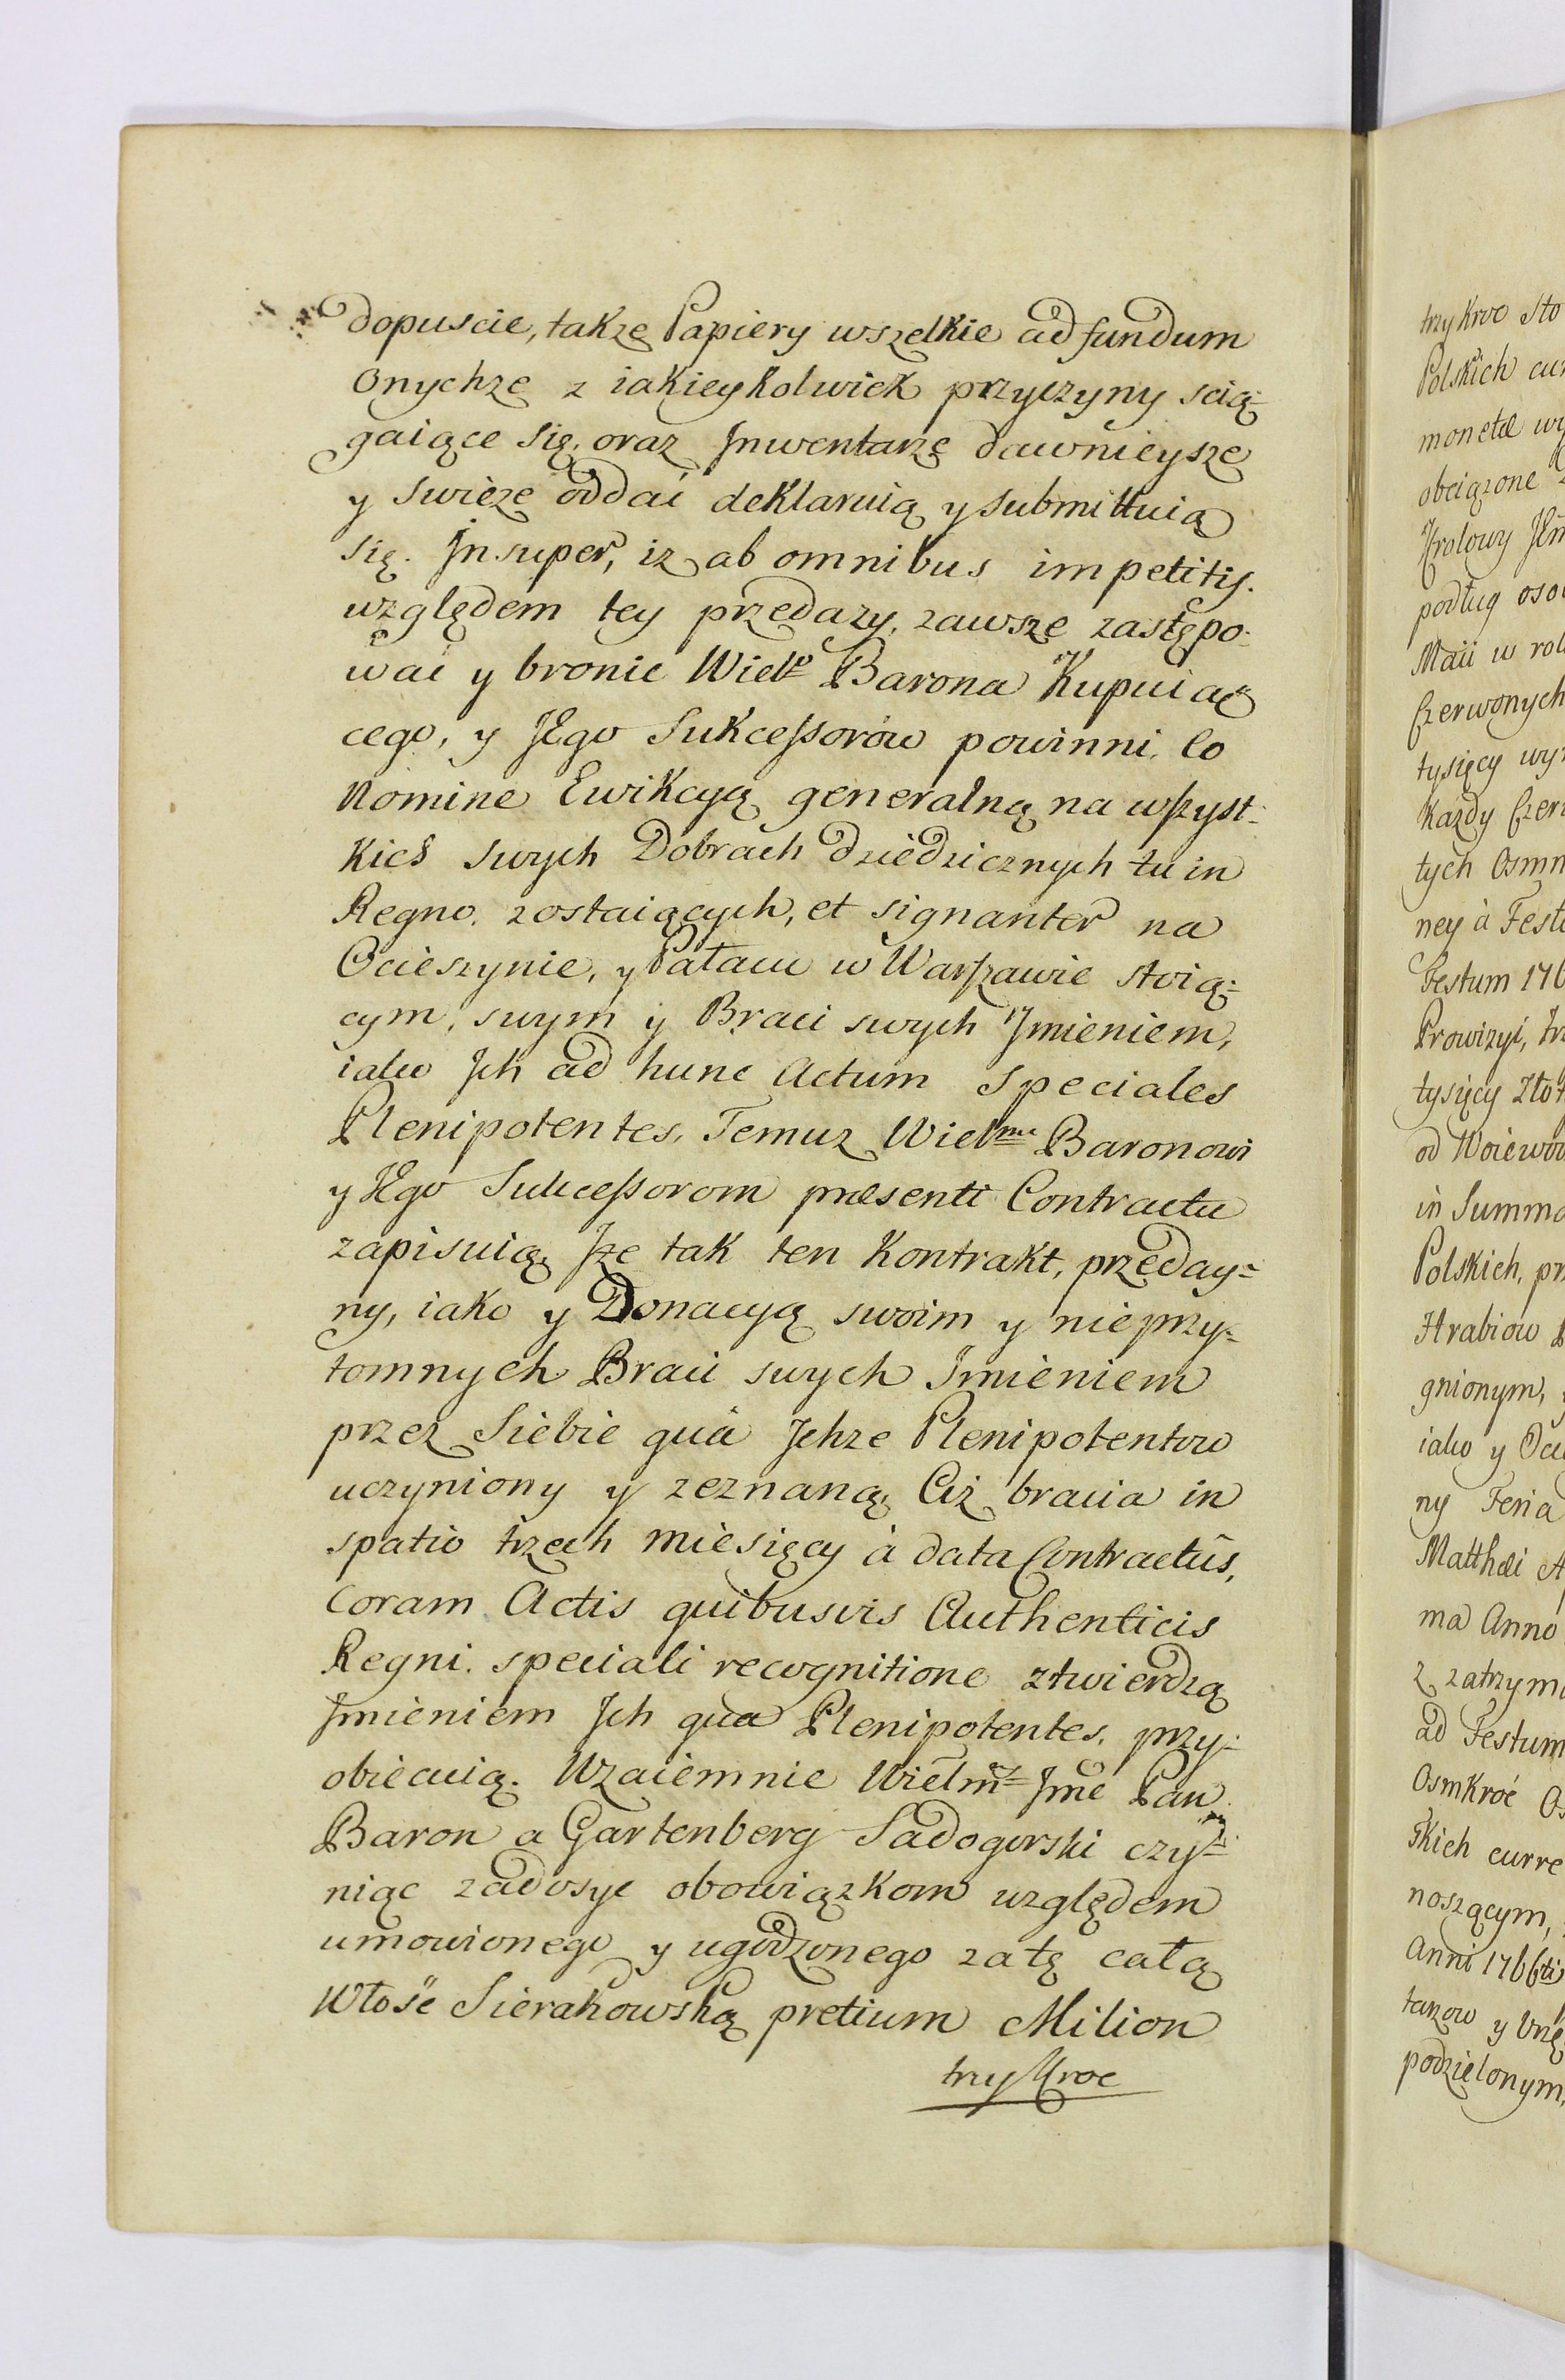 dopuscie, takze Papiery wszelkie ad fundum
Onychze z iakieykolwiek przyczyny scią-
gaiące Się, oraz Jnwentarze dawnieysze
y swieze oddać deklaruią y submittuią
się. Jnsuper, iz ab omnibus impetitis.
względem tey przedazy, zawsze zastępo-
wać y bronic Wielo Barona Kupuią-
cego, y JEgo Sukcessorów powinni. Eo
Nomine Ewikcyą generalną na wszyst-
kich swych Dobrach dziedzicznych tu in
Regno zostaiących, et signanter na
Ocieszynie, y Pałacu w Warszawie stoią-
cym, swym y Braci swych Jmieniem,
iako Jch ad hunc Actum Speciales
Plenipotentes, Temuz Wielmu Baronowi
y JEgo Sukcessorom præsenti Contractu
zapisuią, Jże tak ten Kontrakt, przeday-
ny, iako y Donacyą swoim y nieprzy-
tomnych Braci swych Jmieniem
przez Siebie quà Jchze Plenipotentow
uczyniony y zeznaną, Ciż bracia in
spatio trzech miesięcy à data Contractûs,
Coram Actis quibusvis Authenticis
Regni. speciali recognitione ztwierdzą
Jmieniem Jch qua Plenipotentes, przy-
obiecuią. Wzaiemnie Wielmny Jmć Pan
Baron a Gartenberg Sadogorski czy-
niąc zadosyc obowiązkom względem
umowionego y ugodzonego za tę całą
Włość Sierakowską pretium Milion
trzy Kroc
trzykroc Sto
Polskich
monetæ
obciązone
Krolowy
podług
Maii w
Czerwonych
tysięcy
Kazdy
tych
ney à
Festum
Prowizyi,
tysięcy
od
in Summa
Polskich,
Hrabiow
gnionym,
iako y
ny Feria
Matthæi
ma Anno
z
ad Festum
Osmkroć
noszącym,
Anni 1766ti
y
podzielonym,